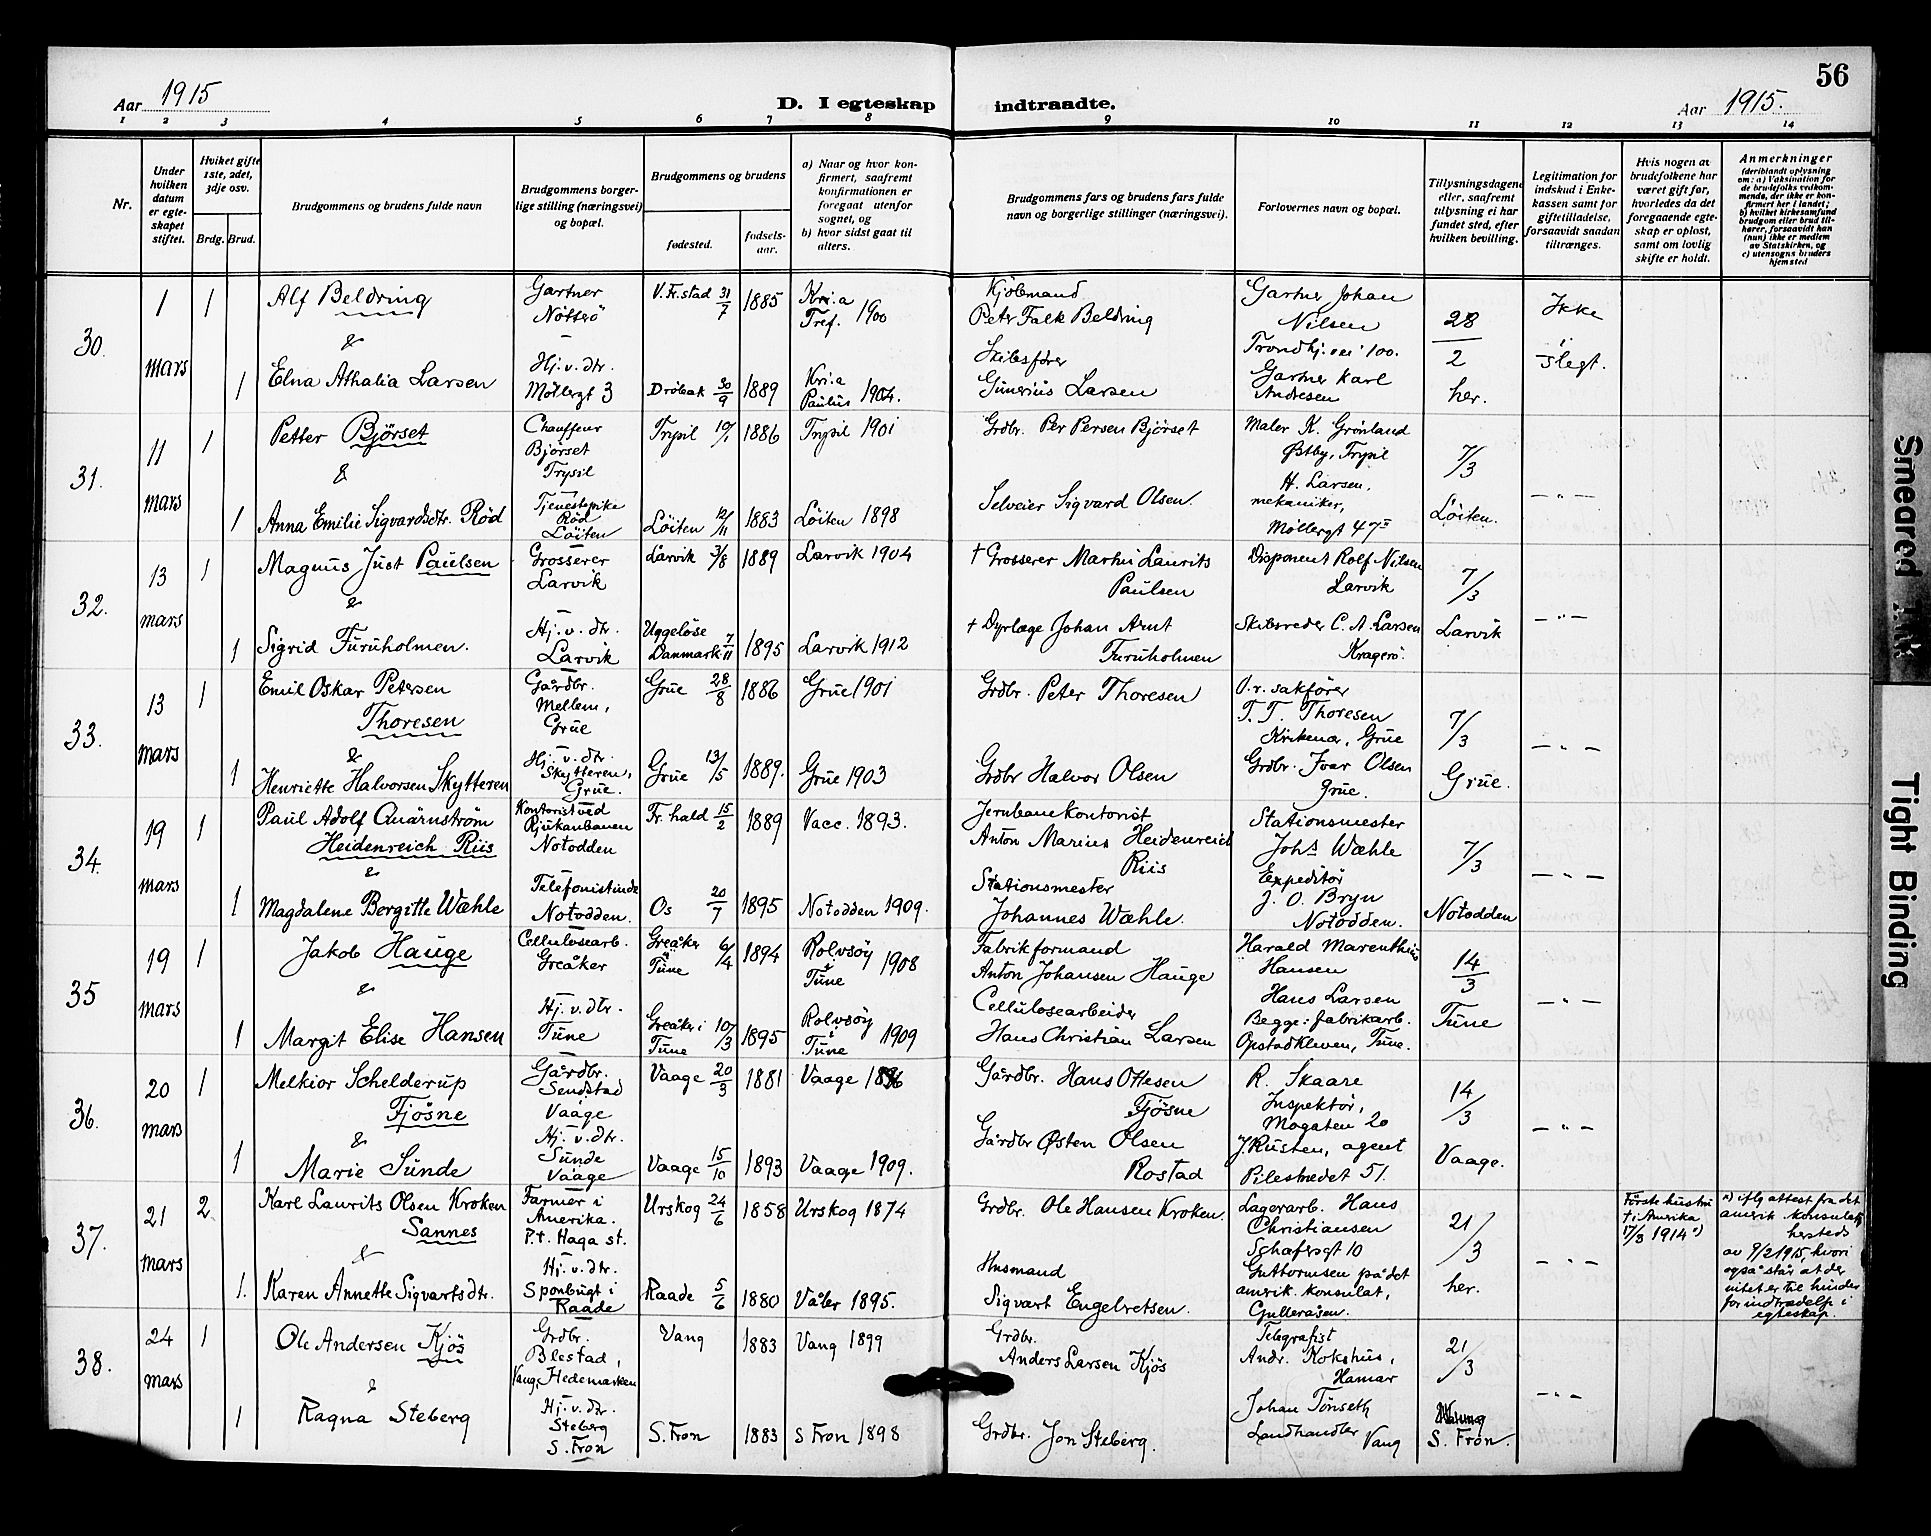 56
Aar 1915
D. I egteskap
indtraadte.
Aar 1915.
1 2 3 4 5 6 7 8 9 10 11 12 13 14
Nr.
Under hvilken datum er egteskapet stiftet.
Hviket gifte 1ste, 2det, 3dje osv.
Brdg. Brud.
Brudgommens og brudens fulde navn
Brudgommens borgerlige stilling (næringsvei) og bopæl.
Brudgommens og brudens
fødested.
fødselsaar.
a) Naar og hvor konfirmert, saafremt konfirmationen er foregaat utenfor sognet, og
b) hvor sidst gaat til alters.
Brudgommens fars og brudens fars fulde navn og borgerlige stillinger (næringsvei).
Forlovernes navn og bopæl.
Tillysningsdagene eller, saafremt tillysning ei har fundet sted, efter hvilken bevilling.
Legitimation for indskud i Enkekassen samt for giftetilladelse, forsaavidt saadan tiltrænges.
Hvis nogen av brudefolkene har været gift før, hvorledes da det foregaaende egteskap er opløst, samt om lovlig skifte er holdt.
Anmerkninger
(deriblandt oplysning om: a) Vaksination for de brudefolks vedkommende, der ikke er konfirmert her i landet;
b) hvilket kirkesamfund brudgom eller brud tilhører, forsaavidt han (hun) ikke er medlem av Statskirken, og
c) utensogns bruders hjemsted
30. 1 mars 1
Alf Beldring
Gartner
Nötterö
V. Fr.stad 31/7 1885
Kri.a
Tref. 1900
Kjölemand
Peter Falk Beldring
Gartner Johan
Nilsen
Trondhj. vei 100.
28/2
Ikke
slegt.
&
1
Elna Athalia Larsen
Hj. v. dtr.
Möllergt 3
Dröbak 30/9 1889
Kri.a
Paulus 1904.
Skibsförer
Gunerius Larsen
Gartner Karl
Andresen
her.
31. 11 mars 1
Petter Björset
Chauffeur
Björset
Trysil
Trysil 10/1 1886
Trysil 1901
Grdbr. Per Persen Björset
Maler K. Grönland
Østby, Trysil
7/3
-"-
&
1
Anna Emilie Sigvardsdtr. Röd
Tjenestepike
Röd
Löiten
Löiten 12/11 1883
Löiten 1898
Selveier Sigvard Olsen.
H. Larsen,
mekaniker,
Møllergt 47 II
Löiten.
32. 13 mars 1
Magnus Just Paulsen
Grosserer
Larvik
Larvik 3/8 1889
Larvik 1904
† Grosserer Martin Laurits
Paulsen
Disponent Rolf Nilsen
Larvik
7/3
-"-
&
1
Sigrid Furuholmen.
Hj. v. dtr.
Larvik
Uggelöse
Danmark 7/11 1895
Larvik 1912
† Dyrlæge Johan Arnt
Furuholmen
Skibsreder C. A. Larsen
Kragerö.
Larvik
33. 13 mars 1
Emil Oskar Petersen
Thoresen
Gårdbr.
Mellem,
Grue
Grue 28/8 1886
Grue 1901
Grdbr. Peter Thoresen
O.r. sakförer
T. T. Thoresen
Kirkenær, Grue
7/3
-"-
&
1
Henriette Halvorsen Skytteren
Hj. v. dtr.
Skytteren,
Grue.
Grue 13/5 1889.
Grue 1903
Grdbr Halvor Olsen
Grdbr. Ivar Olsen
Grue.
Grue.
34. 19 mars 1
Paul Adolf Quarnström
Heidenreich Riis
Kontorist ved
Rjukanbanen
Notodden
Fr. hald 15/2 1889
Vacc. 1893.
Jernbanekontorist
Anton Marius Heidenreich
Riis
Stationsmester
Johs Wæhle
7/3
-"-
&
1
Magdalene Bergitte Wæhle
Telefonistinde
Notodden.
Os 20/7 1895
Notodden 1909.
Stationsmester
Johannes Wæhle.
Expeditör
J. O. Bryn
Notodden.
Notodden
35 19 mars 1
Jakob Hauge
Cellulosearb.
Greåker
Greåker
Tune 6/4 1894
Rolvsöy
i
Tune 1908
Fabrikformand
Anton Johansen Hauge
Harald Marenthius
Hansen
14/3
-"-
&
1
Margit Elise Hansen
Hj. v. dtr.
Tune
Greåker i
Tune 10/3 1895
Rolvsöy
i
Tune 1909
Cellulosearbeider
Hans Christian Larsen
Hans Larsen
Begge: fabrikarb.
Opstadkleven, Tune.
Tune
36. 20 mars 1
Melkior Schelderup
Fjösne
Gårdbr.
Sendstad
Vaage
Vaage 20/3 1881
Vaage 1896
Gårdbr. Hans Ottesen
Fjösne
R. Skaare
Inspektör,
Mogaten 20
14/3
-"-
&
1
Marie Sunde
Hj. v. dtr.
Sunde
Vaage
Vaage 15/10 1893
Vaage 1909.
Gårdbr Østen Olsen
Rostad
J. Rusten, agent
Pilestredet 51.
Vaage.
37. 21 mars 2
Karl Laurits Olsen Kroken
Sannes
Farmer i
Amerika.
P.t. Haga st.
Urskog 24/6 1858
Urskog 1874
Grdbr. Ole Hansen Kroken.
Lagerarb. Hans
Christiansen
Schafersgt 10
21/3
-"-
Förste hustru
† i Amerika
17/3 1914 a)
a) iflg attest fra det
amrik konsulat
hersteds
av 9/2 1915, hvori
også står at der
intet er til hinder
for indtrædelse i
egteskap.
&
1.
Karen Annette Sigvartsdtr.
Hj. v. dtr.
Sponbugt i
Raade
Raade 5/6 1880
Våler 1895.
Husmand
Sigvart Engelretsen.
Guttormsen på det
amrik. konsulat,
Gulleråsen.
her.
38. 24 mars 1
Ole Andersen Kjös
Grdbr.
Blestad,
Vang, Hedemarken
Vang 1883
Vang 1899
Grdbr.
Anders Larsen Kjös
Telegrafist
Andr. Kokshus,
Hamar
21/3
-"-
&
1
Ragna Steberg
Hj. v. dtr.
Steberg
S. Fron
S. Fron 1883
S Fron 1898
Grdbr. Jon Steberg.
Johan Tönseth
Landhandler Vang
S. Fron.
Smeared Ink
Tight Binding